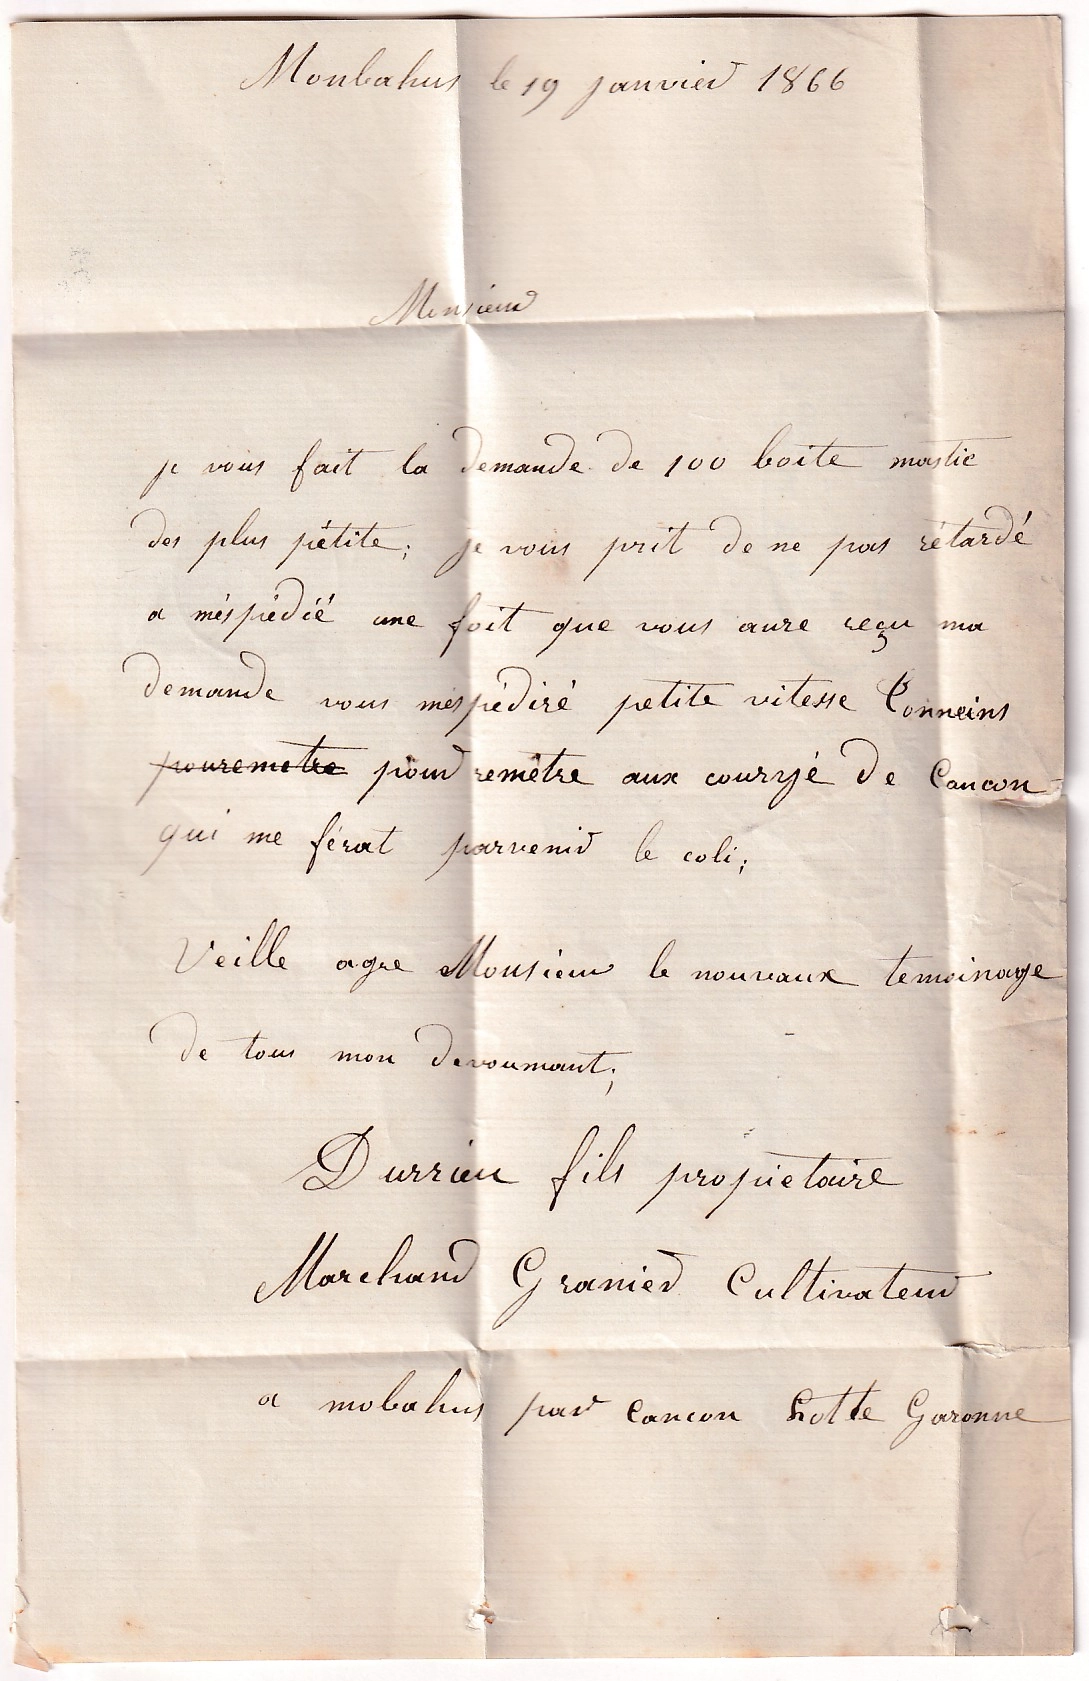 Monbahus le 19 janvier 1866
Monsieur
je vous fait la demande de 100 boite mastic
des plus pétite; je vous prit de ne pas rétardé
a méspédié une foit que vous aure reçu ma
demande vous méspédiré petite vitesse Tonneins
pouremetre pour remétre aux couryé de Cancon
qui me férat parvenir le coli;
Veille agre Monsieur le nouvaux temoinage
de tous mon devoumant;
Durrieu fils propietaire
Marchand Granier Cultivateur
a mobahus par Cancon Lotte Garonne